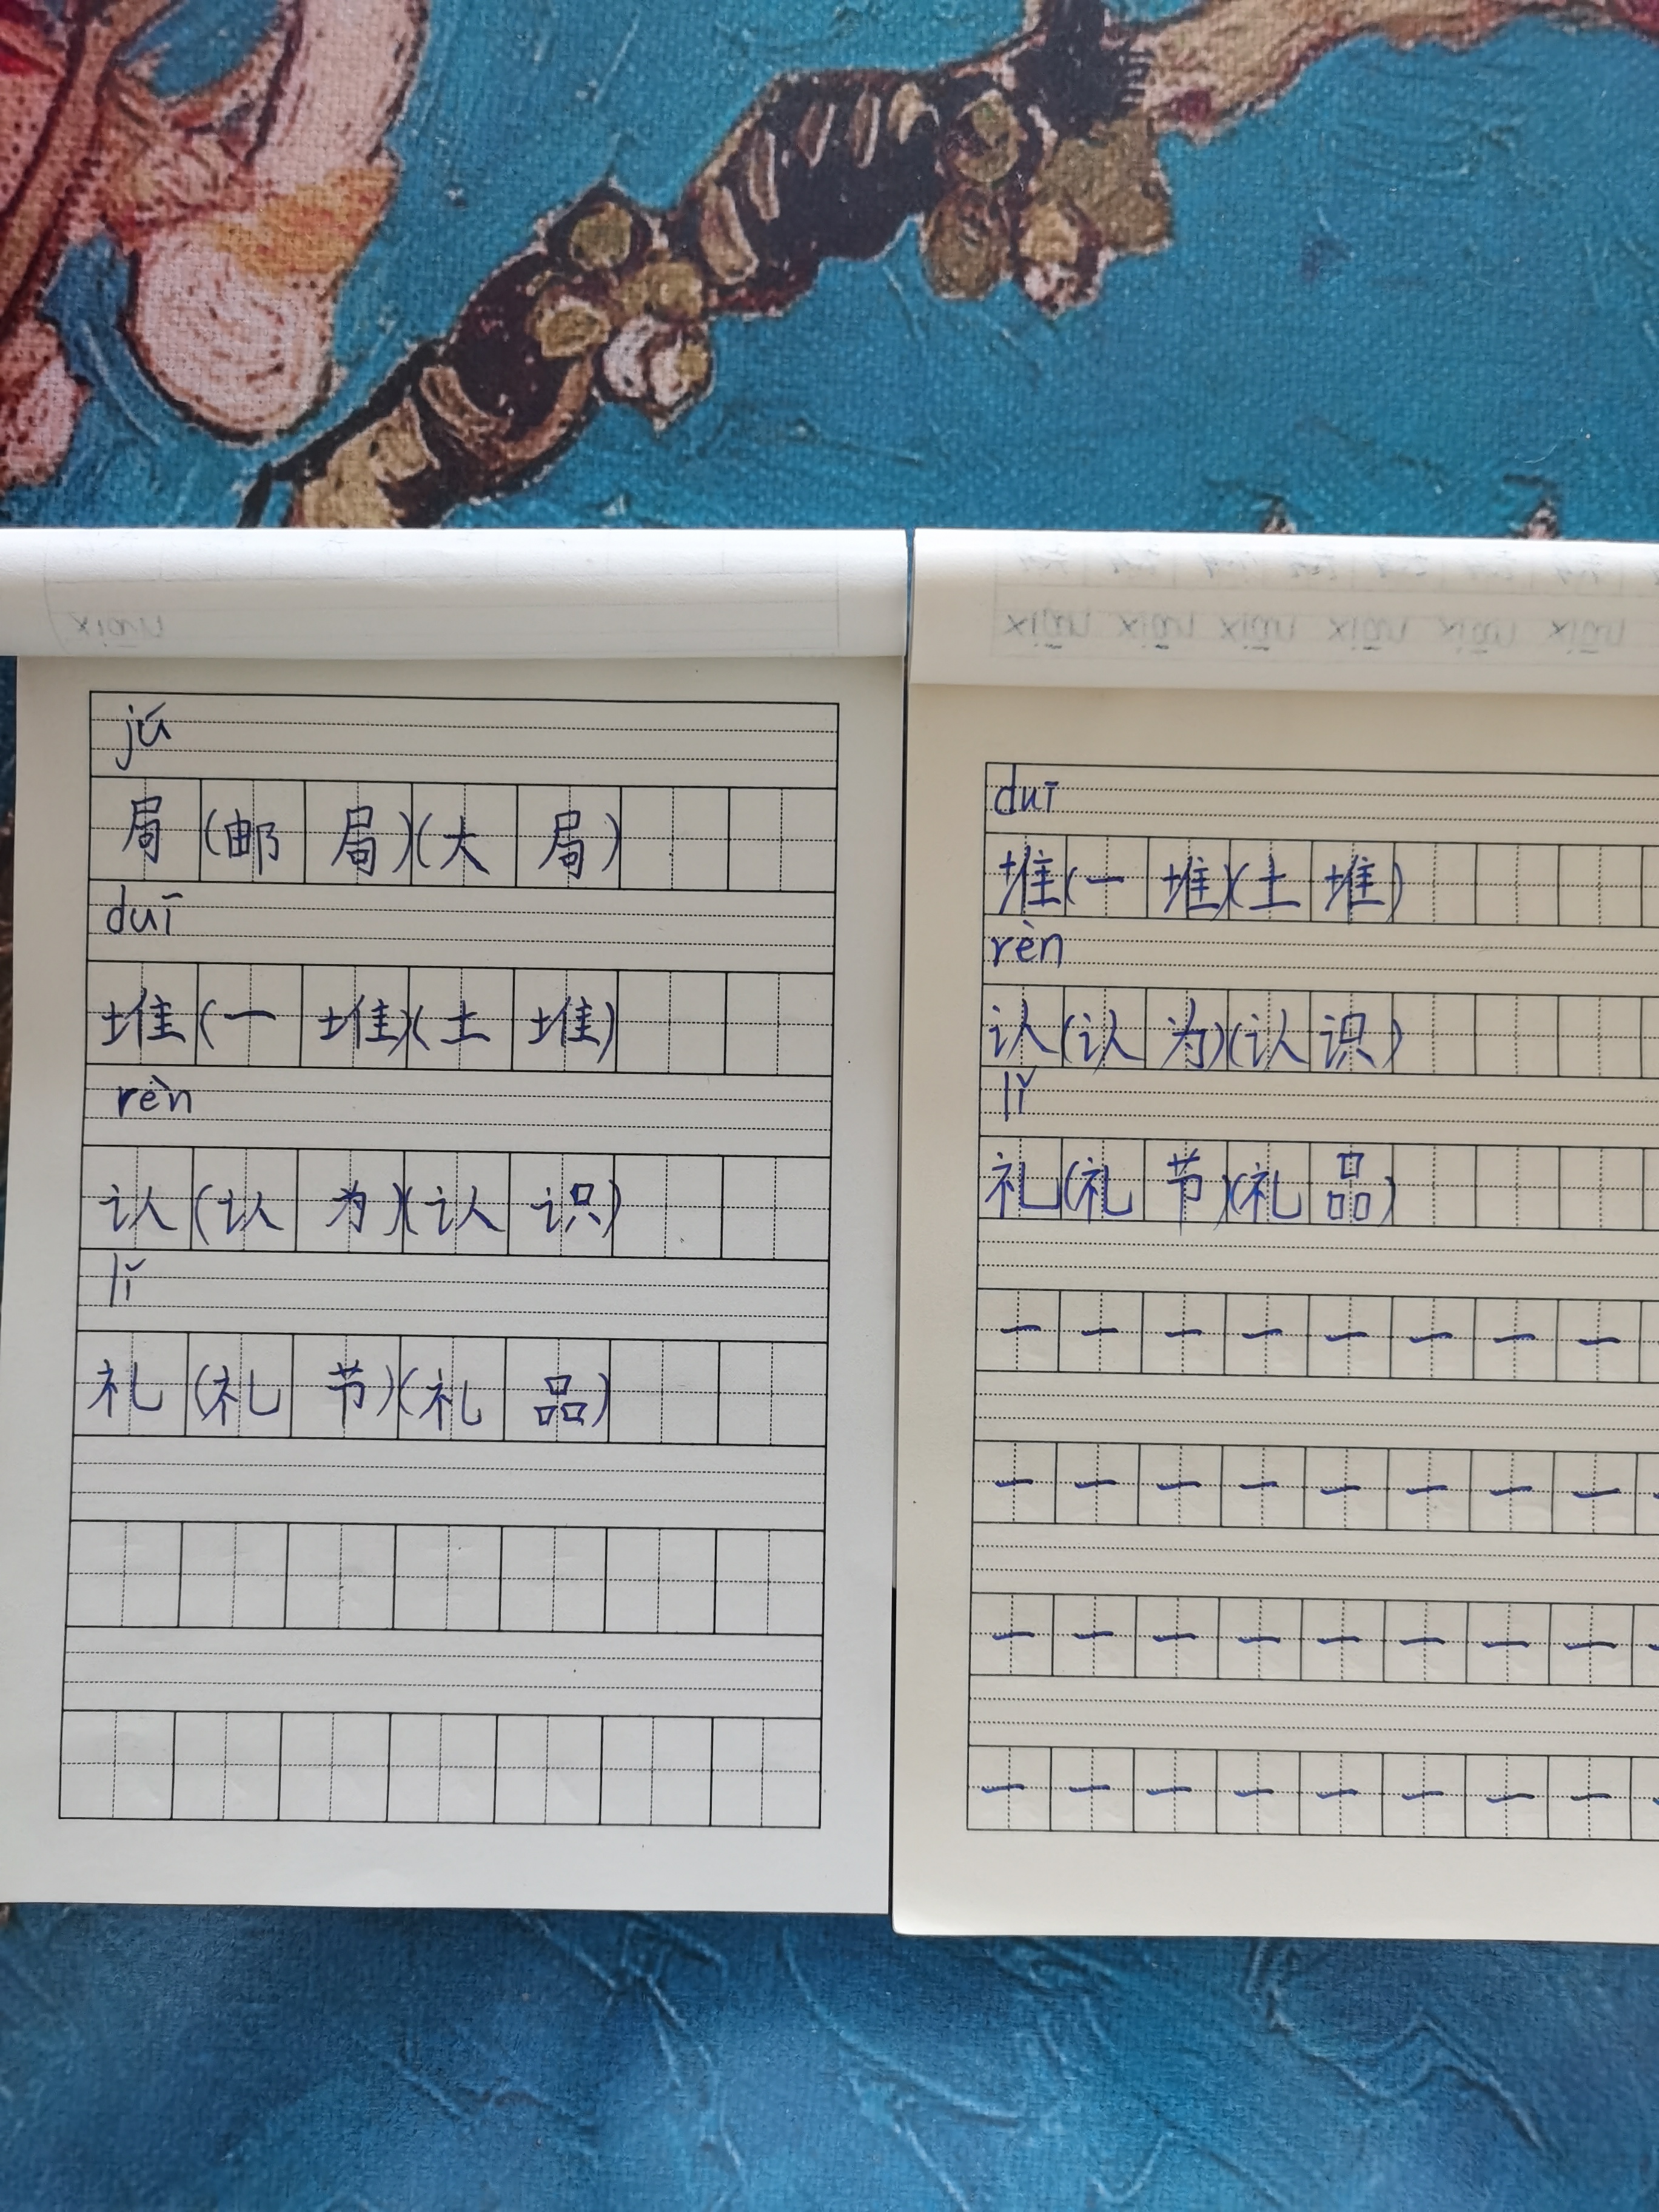 jú
局(邮局)(大局)
duī
堆(一堆)(土堆)
rèn
认(认为)(认识)
lǐ
礼(礼节)(礼品)
duī
堆(一堆)(土堆)
rèn
认(认为)(认识)
lǐ
礼(礼节)(礼品)
一 一 一 一 一 一 一 一
一 一 一 一 一 一 一 一
一 一 一 一 一 一 一 一
一 一 一 一 一 一 一 一